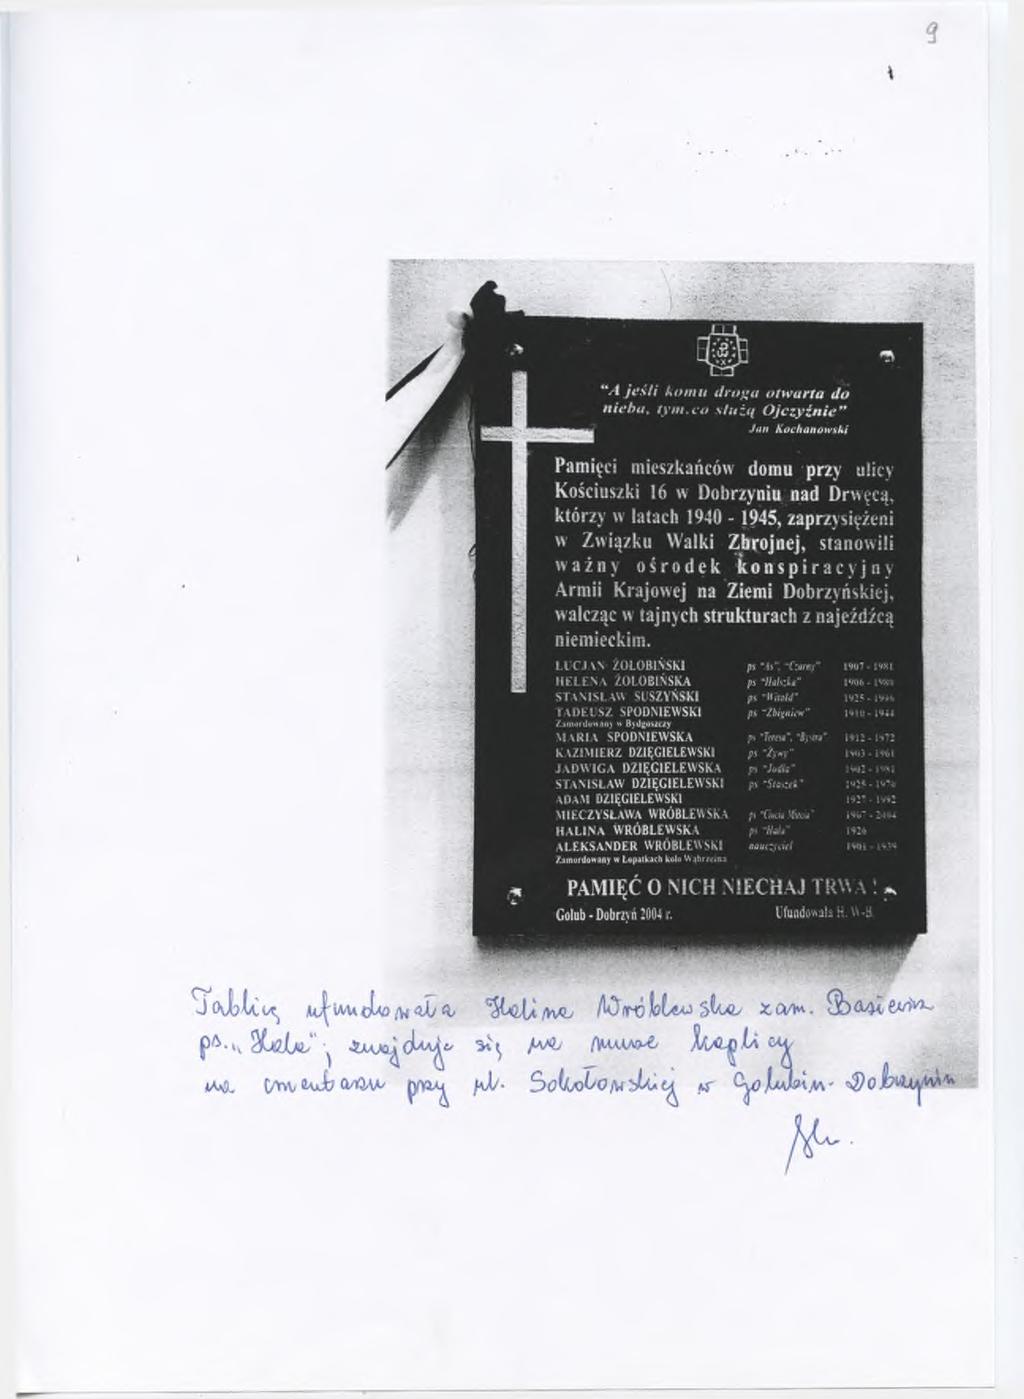 9
"A jeśli komu droga otwarta do
nieba, tym.co służą Ojczyźnie"
Jan Kochanowski
Pamięci mieszkańców domu przy ulicy
Kościuszki 16 w Dobrzyniu nad Drwęcą,
którzy w latach 1940 - 1945, zaprzysiężeni
w Związku Walki Zbrojnej, stanowili
ważny ośrodek konspiracyjny
Armii Krajowej na Ziemi Dobrzyńskiej,
walcząc w tajnych strukturach z najeźdźcą
niemieckim.
LUCJAN ŻOŁOBIŃSKI ps "As", "Czarny" 1907 - 1981
HELENA ŻOŁOBIŃSKA ps "Halszka" 1906 -
STANISŁAW SUSZYŃSKI ps "Witold" 1925 - 1996
TADEUSZ SPODNIEWSKI ps "Zbigniew" 1910 - 1944
Zamordowany w Bydgoszczy
MARIA SPODNIEWSKA ps "Teresa", "Bystra" 1912 - 1972
KAZIMIERZ DZIĘGIELEWSKI ps "Żywy" 1903 - 1961
JADWIGA DZIĘGIELEWSKA ps "Jodła" 1902 - 1981
STANISŁAW DZIĘGIELEWSKI ps "Staszek" 1925 - 1970
ADAM DZIĘGIELEWSKI 1927 - 1992
MIECZYSŁAWA WRÓBLEWSKA ps "Ciocia Miecia" 1907 - 2004
HALINA WRÓBLEWSKA ps "Hala" 1926
ALEKSANDER WRÓBLEWSKI nauczyciel 1901 - 1939
Zamordowany w Łopatkach koło Wąbrzeźna
PAMIĘĆ O NICH NIECHAJ TRWA !
Golub - Dobrzyń 2004 r. Ufundowała H. W-B.
Tablicę ufundowała Halina Wróblewska zam. Basiewicz
ps. „Hala"; znajduje się na murze kaplicy
na cmentarzu przy ul. Sokołowskiej w Golubiu-Dobrzyniu